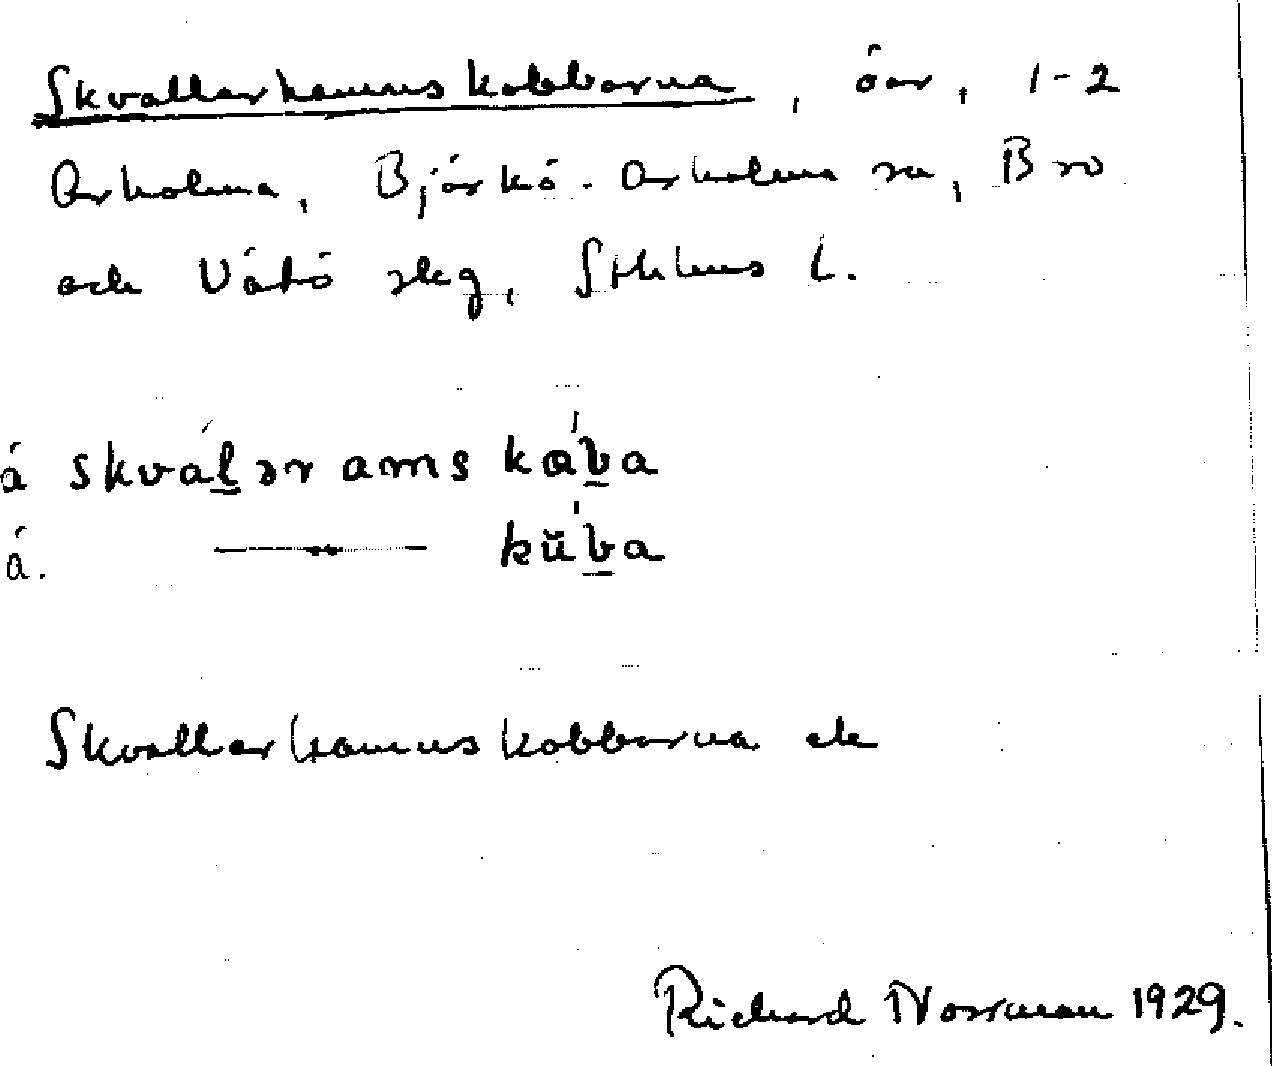 Skvallerhamnskobbarna, öar, 1-2
Arholma, Björkö-Arholma sn, Bro
och Vätö slg, Sthlms l.
å skváḻər ams kåḇa
å. —— kŭḇa
Skvallerhamnskobbarna ek
Richard Norrman 1929.